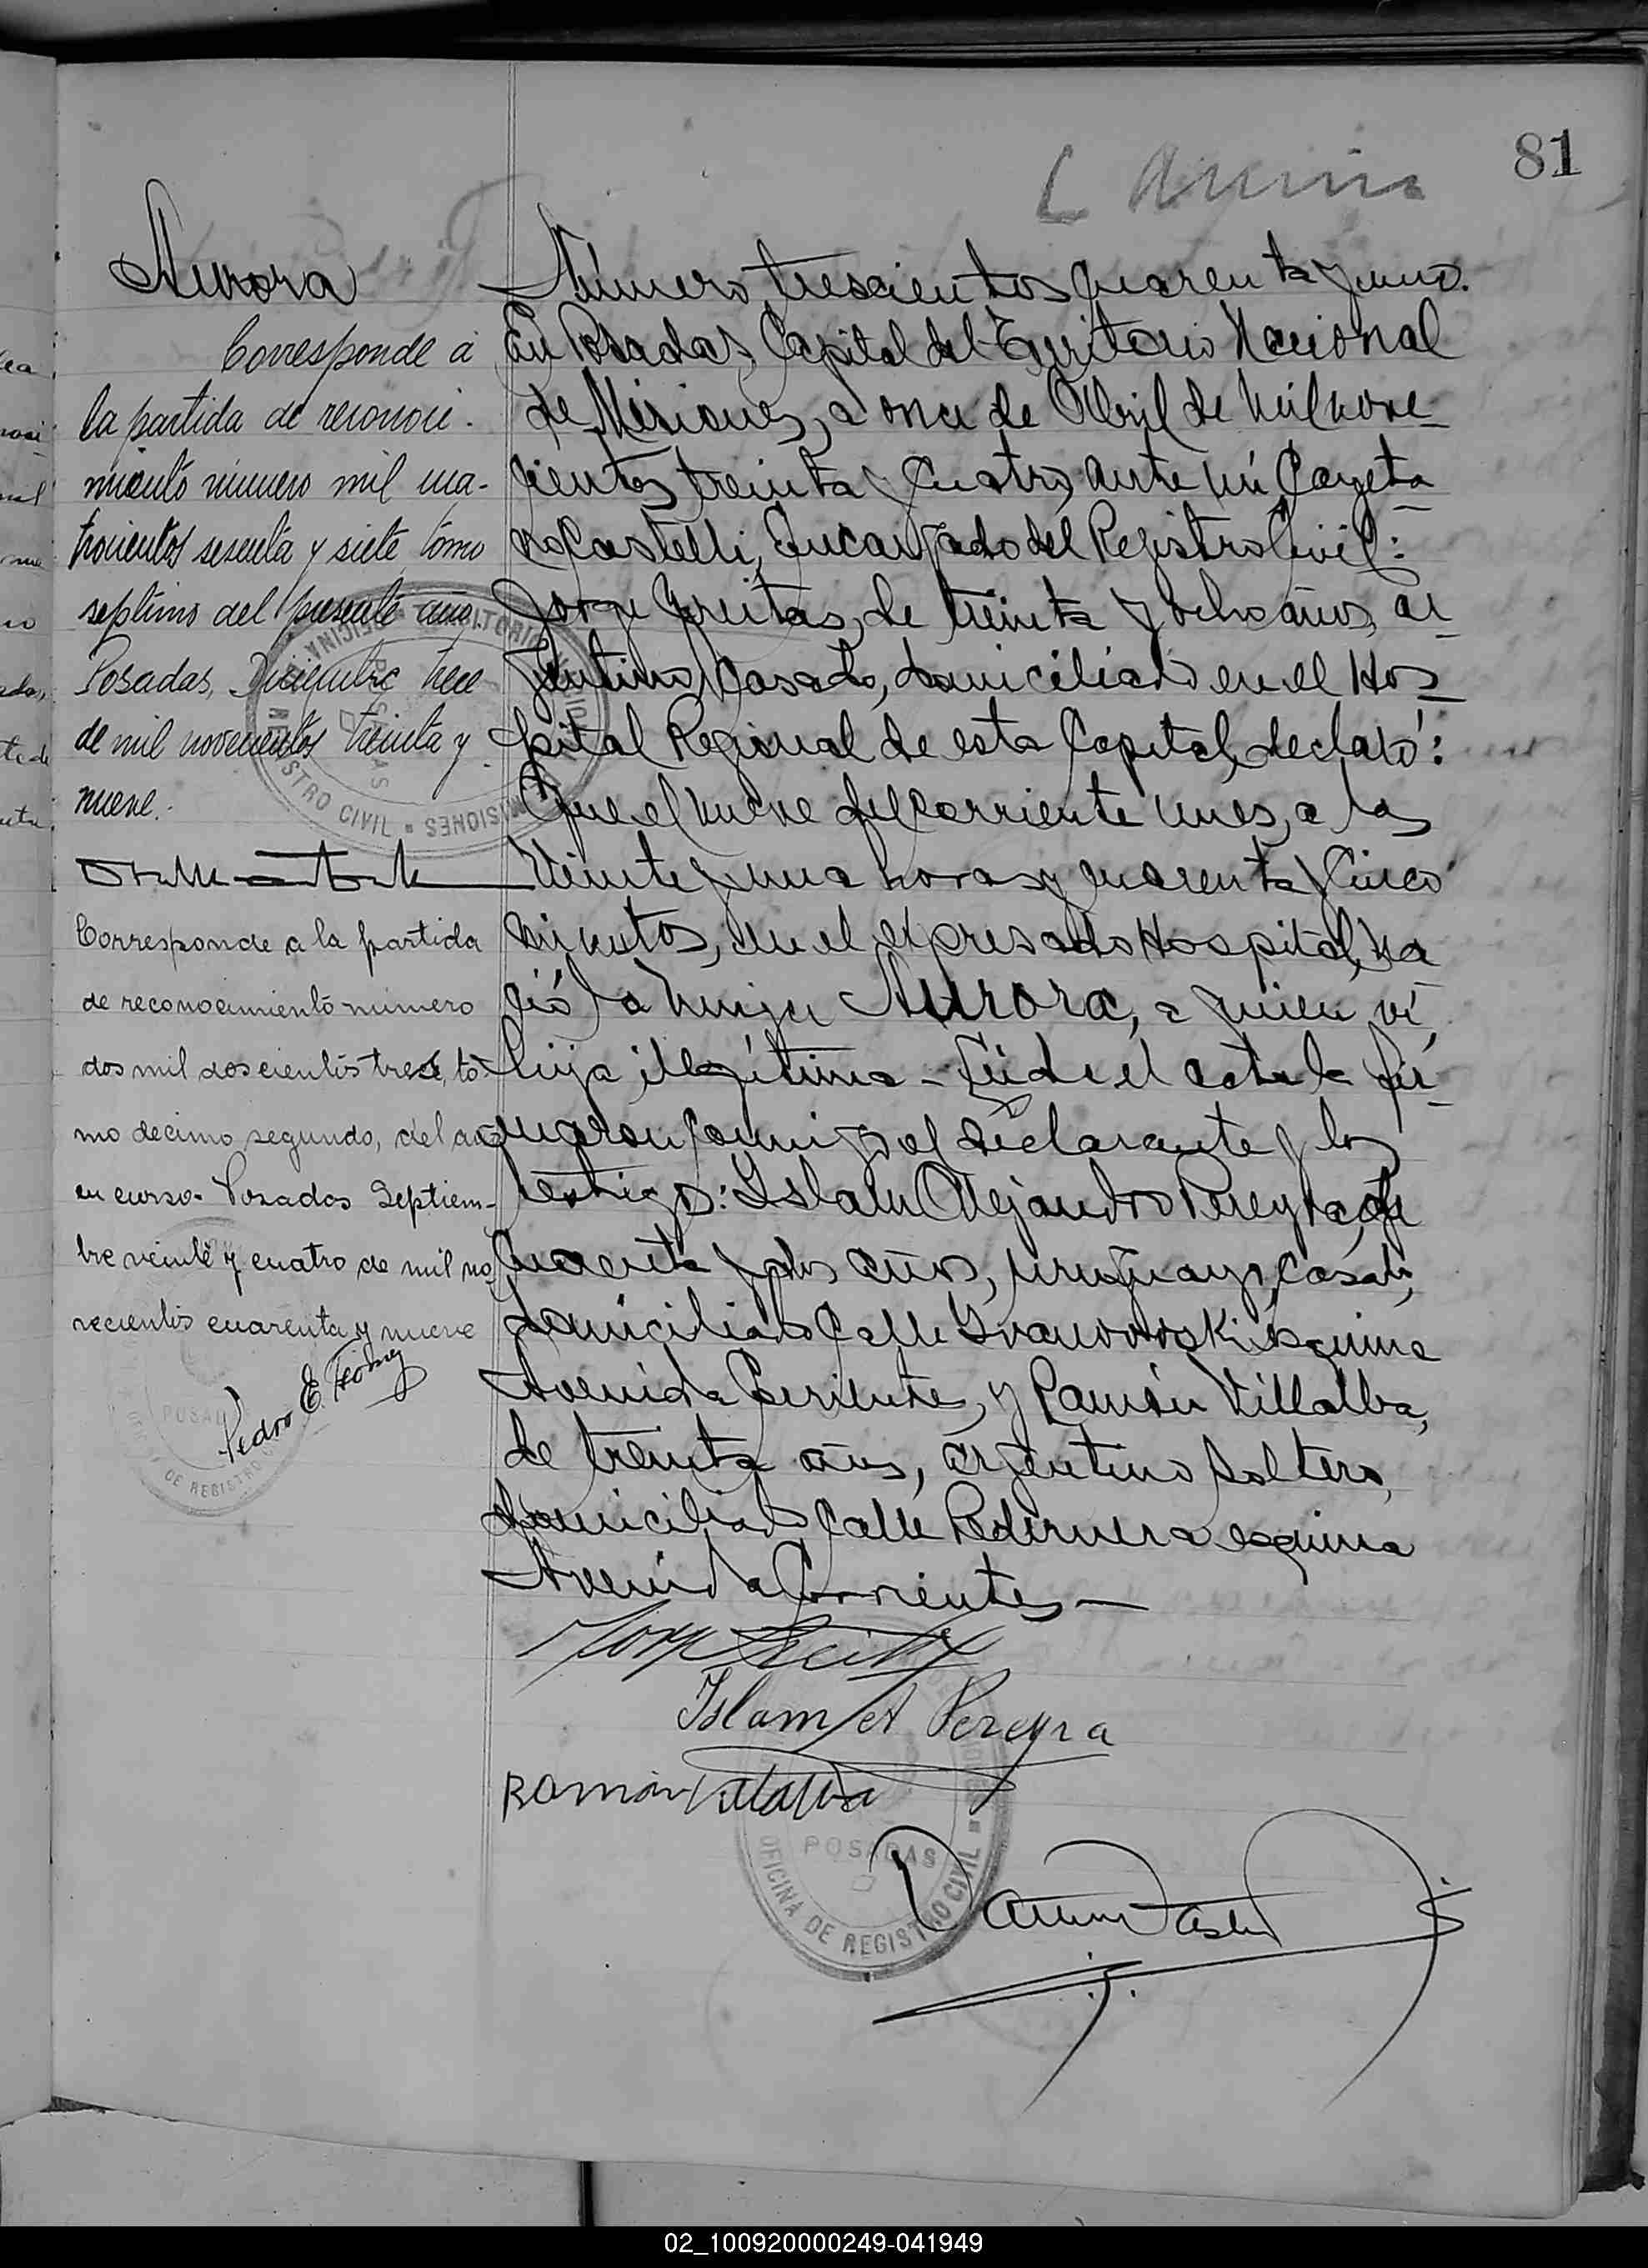 81
Aurora
Corresponde a
la partida de reconoci-
miento número mil cua-
trocientos sesenta y siete, tomo
septimo del presente año.
Posadas, Diciembre trece
de mil novecientos treinta y
nueve.
Corresponde a la partida
de reconocimiento número
dos mil doscientos trece, to-
mo decimo segundo, del año
en curso. Posadas Septiem-
bre veinte y cuatro de mil no-
vecientos cuarenta y nueve
Pedro E.
Número trescientos cuarenta y uno.
En Posadas, Capital del Territorio Nacional
de Misiones, a once de Abril de mil nove-
cientos treinta y cuatro, ante mí Cayeta-
no Castelli, Encargado del Registro Civil:
Jorge Freitas, de treinta y ocho años, ar-
gentino, casado, domiciliado en el Hos-
pital Regional de esta Capital, declaró:
Que el nueve del corriente mes, a las
veinte y una horas y cuarenta y cinco
minutos, en el expresado Hospital, na-
ció la mujer Aurora, a quien ví,
hija ilegítima - Leída el acta la fir-
maron conmigo el declarante y los
testigos: Islam Alejandro Pereyra, de
cuarenta y dos años, uruguayo, casado,
domiciliado Calle Ivanowski esquina
Avenida Corrientes, y Ramón Villalba,
de treinta años, argentino, soltero,
domiciliado Calle Pedernera esquina
Avenida Corrientes —
Jorge Freitas
Islam A Pereyra
Ramón Villalba
POSADAS
OFICINA DE REGISTRO CIVIL
REGISTRO CIVIL MISIONES
POSADAS
02_100920000249-041949